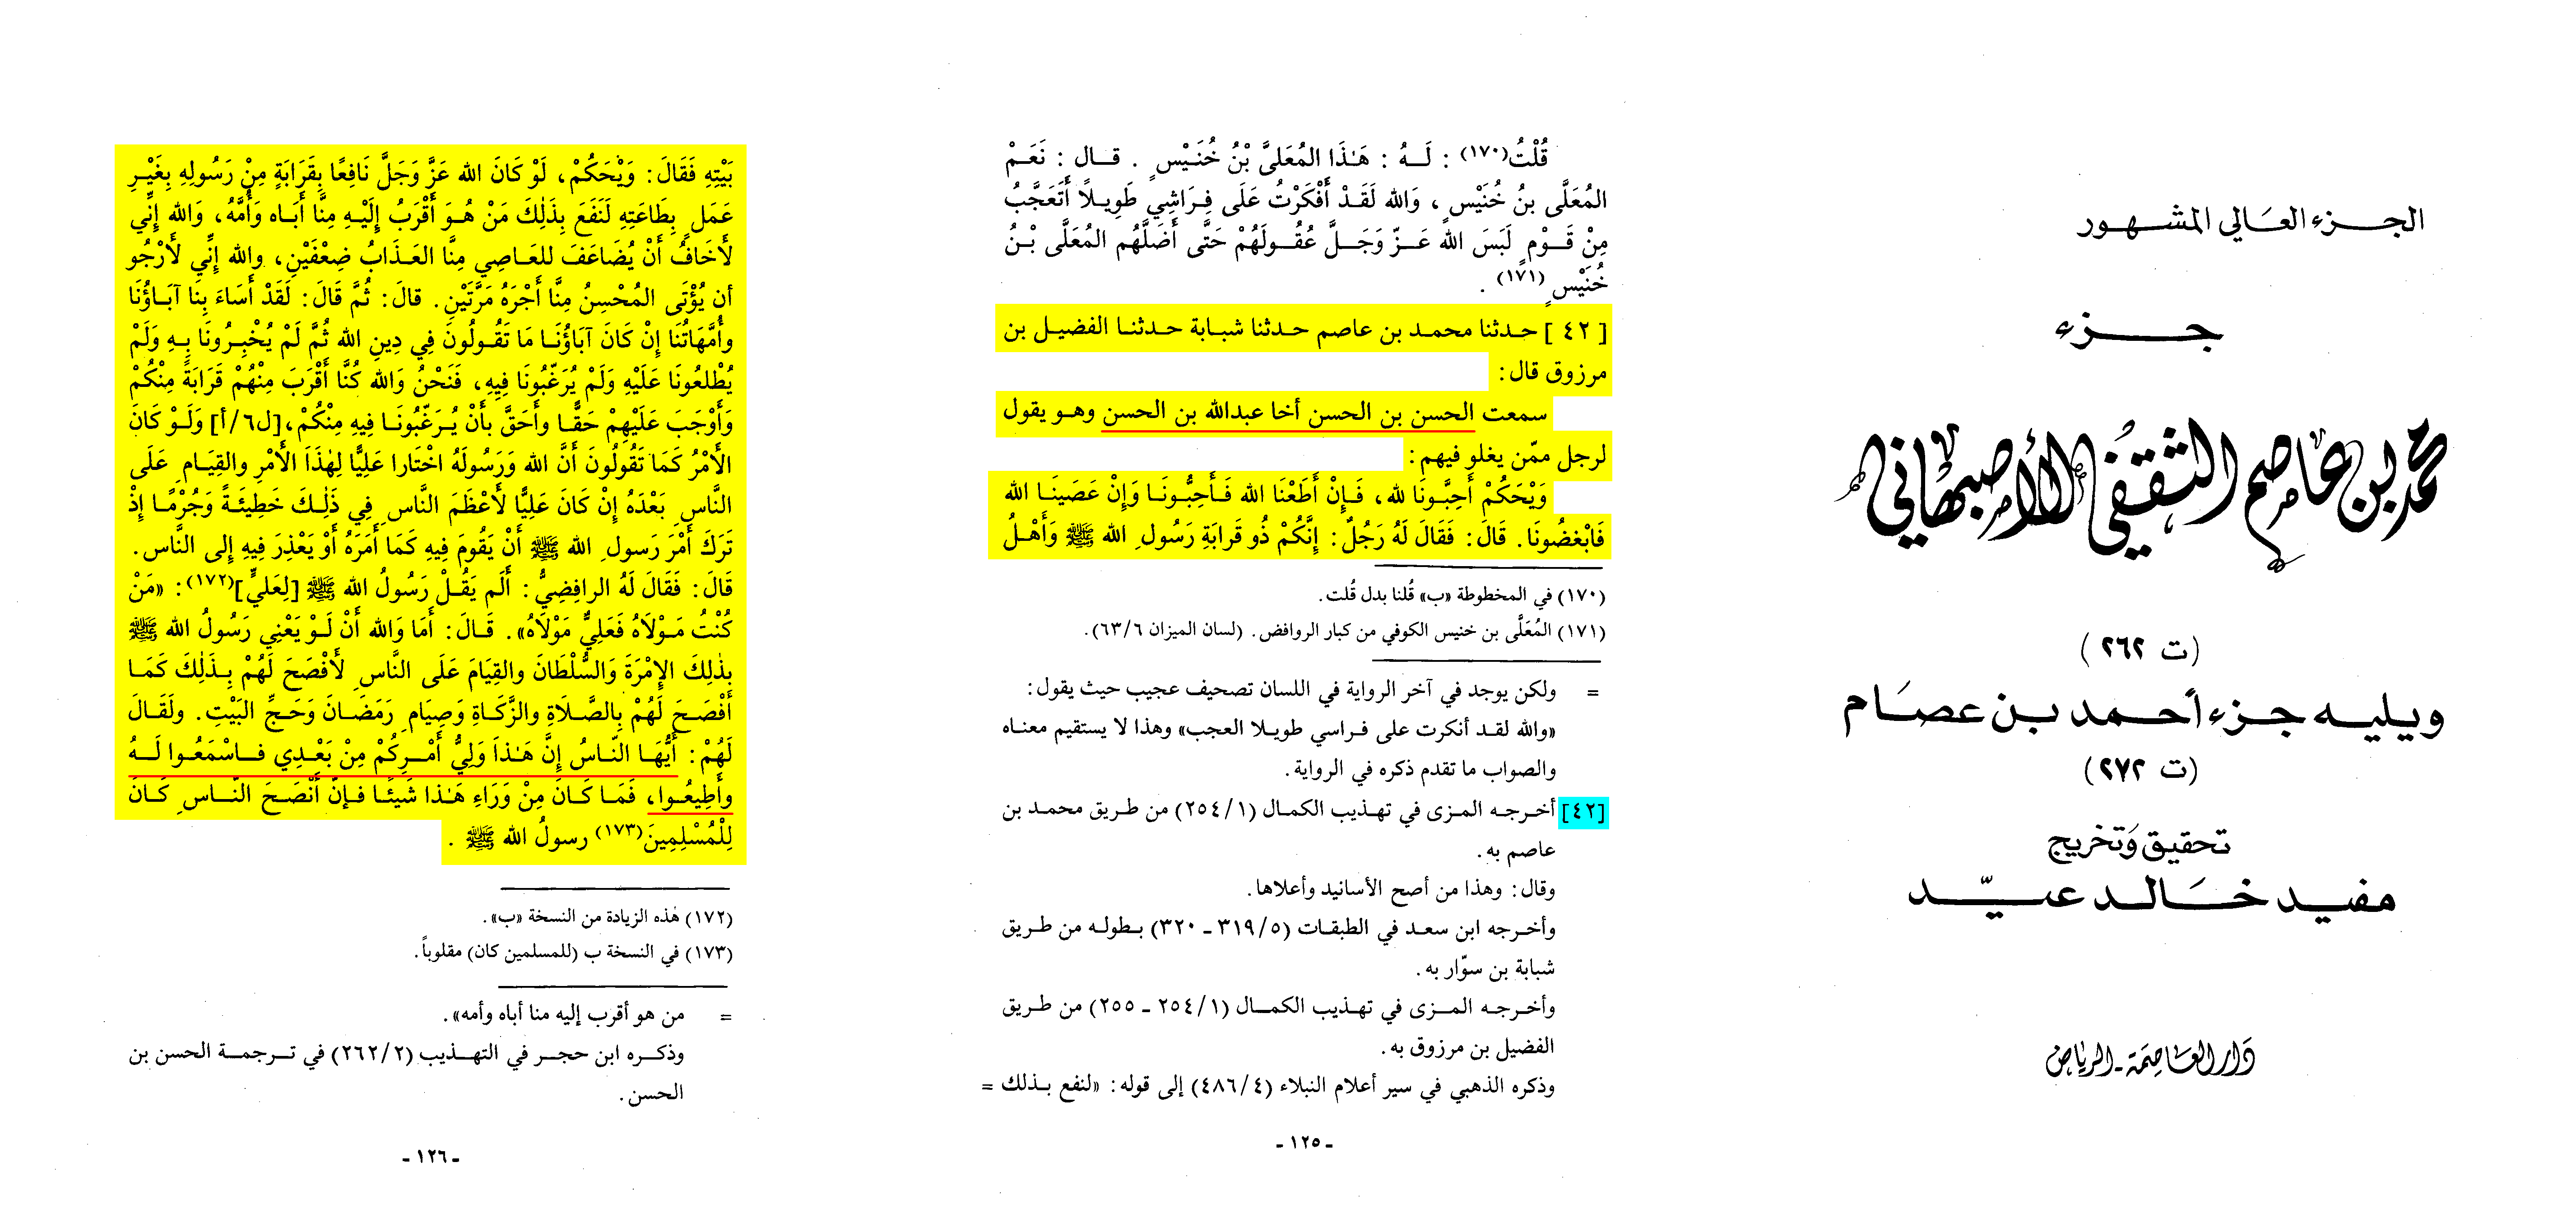 الجزء العالي المشهور
جزء
محمد بن عاصم الثقفي الأصبهاني
(ت ٢٦٢)
ويليه جزء أحمد بن عصام
(ت ٢٧٢)
تحقيق وتخريج
مفيد خالد عيد
دار العاصمة - الرياض
قُلْتُ(١٧٠) : لَهُ : هَذَا المُعَلَّى بْنُ خُنَيْسٍ . قال : نَعَمْ
المُعَلَّى بنُ خُنَيْسٍ ، وَالله لَقَدْ أَفْكَرْتُ عَلَى فِرَاشِي طَوِيلًا أَتَعَجَّبُ
مِنْ قَوْمٍ لَبَسَ الله عَزّ وَجَلَّ عُقُولَهُمْ حَتَّى أَضَلَّهُم المُعَلَّى بْنُ
خُنَيْسٍ (١٧١) .
[ ٤٢ ] حدثنا محمد بن عاصم حدثنا شبابة حدثنا الفضيل بن
مرزوق قال :
سمعت الحسن بن الحسن أخا عبدالله بن الحسن وهو يقول
لرجل ممّن يغلو فيهم :
وَيْحَكُمْ أَحِبُّونَا لله ، فَإِنْ أَطَعْنَا الله فَأَحِبُّونَا وَإِنْ عَصَيْنَا الله
فَابْغضُونَا . قَالَ : فَقَالَ لَهُ رَجُلٌ : إِنَّكُمْ ذُو قَرَابَةِ رَسُولِ الله ﷺ وَأَهْلُ
(١٧٠) في المخطوطة «ب» قُلنا بدل قُلت .
(١٧١) المُعَلَّى بن خنيس الكوفي من كبار الروافض . (لسان الميزان ٦/ ٦٣) .
= ولكن يوجد في آخر الرواية في اللسان تصحيف عجيب حيث يقول :
«والله لقد أنكرت على فراسي طويلا العجب» وهذا لا يستقيم معناه
والصواب ما تقدم ذكره في الرواية .
[٤٢] أخرجه المزى في تهذيب الكمال (١/ ٢٥٤) من طريق محمد بن
عاصم به .
وقال : وهذا من أصح الأسانيد وأعلاها .
وأخرجه ابن سعد في الطبقات (٥/ ٣١٩ - ٣٢٠) بطوله من طريق
شبابة بن سوّار به .
وأخرجه المزى في تهذيب الكمال (١/ ٢٥٤ - ٢٥٥) من طريق
الفضيل بن مرزوق به .
وذكره الذهبي في سير أعلام النبلاء (٤/ ٤٨٦) إلى قوله : «لنفع بذلك =
- ١٢٥ -
بَيْتِهِ فَقَالَ : وَيْحَكُمْ ، لَوْ كَانَ الله عَزَّ وَجَلَّ نَافِعًا بِقَرَابَةٍ مِنْ رَسُولِهِ بِغَيْرِ
عَمَلٍ بِطَاعَتِهِ لَنَفَعَ بِذَلِكَ مَنْ هُوَ أَقْرَبُ إِلَيْهِ مِنَّا أَبَاه وَأُمَّهُ ، وَالله إِنِّي
لأَخَافُ أَنْ يُضَاعَفَ للعَاصِي مِنَّا العَذَابُ ضِعْفَيْنِ ، والله إِنِّي لأَرْجُو
أن يُؤْتَى المُحْسِنُ مِنَّا أَجْرَهُ مَرَّتَيْنِ . قالَ : ثُمَّ قَالَ : لَقَدْ أَسَاءَ بِنَا آبَاؤُنَا
وأُمَّهَاتُنَا إِنْ كَانَ آبَاؤُنَا مَا تَقُولُونَ فِي دِينِ الله ثُمَّ لَمْ يُخْبِرُونَا بِهِ وَلَمْ
يُطْلِعُونَا عَلَيْهِ وَلَمْ يُرَغِّبُونَا فِيهِ ، فَنَحْنُ وَالله كُنَّا أَقْرَبَ مِنْهُمْ قَرَابَةً مِنْكُمْ
وَأَوْجَبَ عَلَيْهِمْ حَقًّا وأَحَقَّ بأَنْ يُرَغِّبُونَا فِيهِ مِنْكُمْ ، [ل٦/أ] وَلَوْ كَانَ
الأَمْرُ كَمَا تَقُولُونَ أَنَّ الله وَرَسُولَهُ اخْتَارا عَلِيًّا لِهَذَا الأَمْرِ والقِيَامِ عَلَى
النَّاسِ بَعْدَهُ إِنْ كَانَ عَلِيًّا لأَعْظَمَ النَّاسِ فِي ذَلِكَ خَطِيئَةً وَجُرْمًا إِذْ
تَرَكَ أَمْرَ رَسولِ الله ﷺ أَنْ يَقُومَ فِيهِ كَمَا أَمَرَهُ أَوْ يَعْذِرَ فِيهِ إِلى النَّاسِ .
قَالَ : فَقَالَ لَهُ الرافِضِيُّ : أَلَم يَقُلْ رَسُولُ الله ﷺ [لِعَلِيٍّ](١٧٢) : «مَنْ
كُنْتُ مَوْلَاهُ فَعَلِيٌّ مَوْلَاهُ» . قَالَ : أَمَا وَالله أَنْ لَوْ يَعْنِي رَسُولُ الله ﷺ
بِذَلِكَ الإِمْرَةَ وَالسُّلْطَانَ والقِيَامَ عَلَى النَّاسِ لأَفْصَحَ لَهُمْ بِذَلِكَ كَمَا
أَفْصَحَ لَهُمْ بِالصَّلَاةِ والزَّكَاةِ وَصِيَامِ رَمَضَانَ وَحَجِّ البَيْتِ . ولَقَالَ
لَهُمْ : أَيُّهَا النّاسُ إِنَّ هَذَا وَلِيُّ أَمْرِكُمْ مِنْ بَعْدِي فَاسْمَعُوا لَهُ
وأَطِيعُوا ، فَمَا كَانَ مِنْ وَرَاءِ هَذا شَيئًا فإنّ أَنْصَحَ النَّاسِ كَانَ
لِلْمُسْلِمِينَ(١٧٣) رسولُ الله ﷺ .
(١٧٢) هذه الزيادة من النسخة «ب» .
(١٧٣) في النسخة ب (للمسلمين كان) مقلوباً .
= من هو أقرب إليه منا أباه وأمه» .
وذكره ابن حجر في التهذيب (٢/ ٢٦٢) في ترجمة الحسن بن
الحسن .
- ١٢٦ -